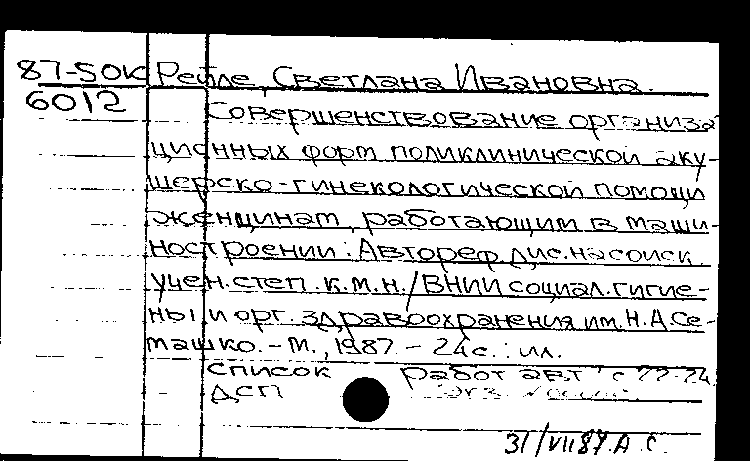 87-50к Рейле, Светлана Ивановна.
6012
Совершенствование организа-
ционных форм поликлинической аку-
шерско-гинекологической помощи
женщинам, работающим в маши-
ностроении: Автореф. дис. на соиск.
учен. степ. к.м.н./ВНИИ социал. гигие-
ны и орг. здравоохранения им. Н.А.Се-
машко. - М., 1987. - 24 с.: ил.
Список работ авт. с 22-24.
ДСП
31/VII87. А.С.